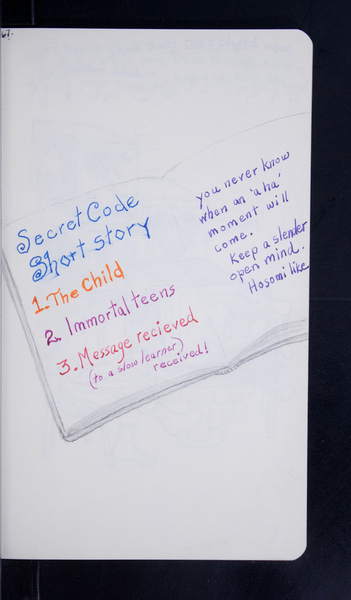 Secret Code
Short story
1. The Child
2. Immortal teens
3. Message recieved
(to a slow learner)
received!
you never know
when an 'aha'
moment will
come.
Keep a slender
open mind.
Hosomi like